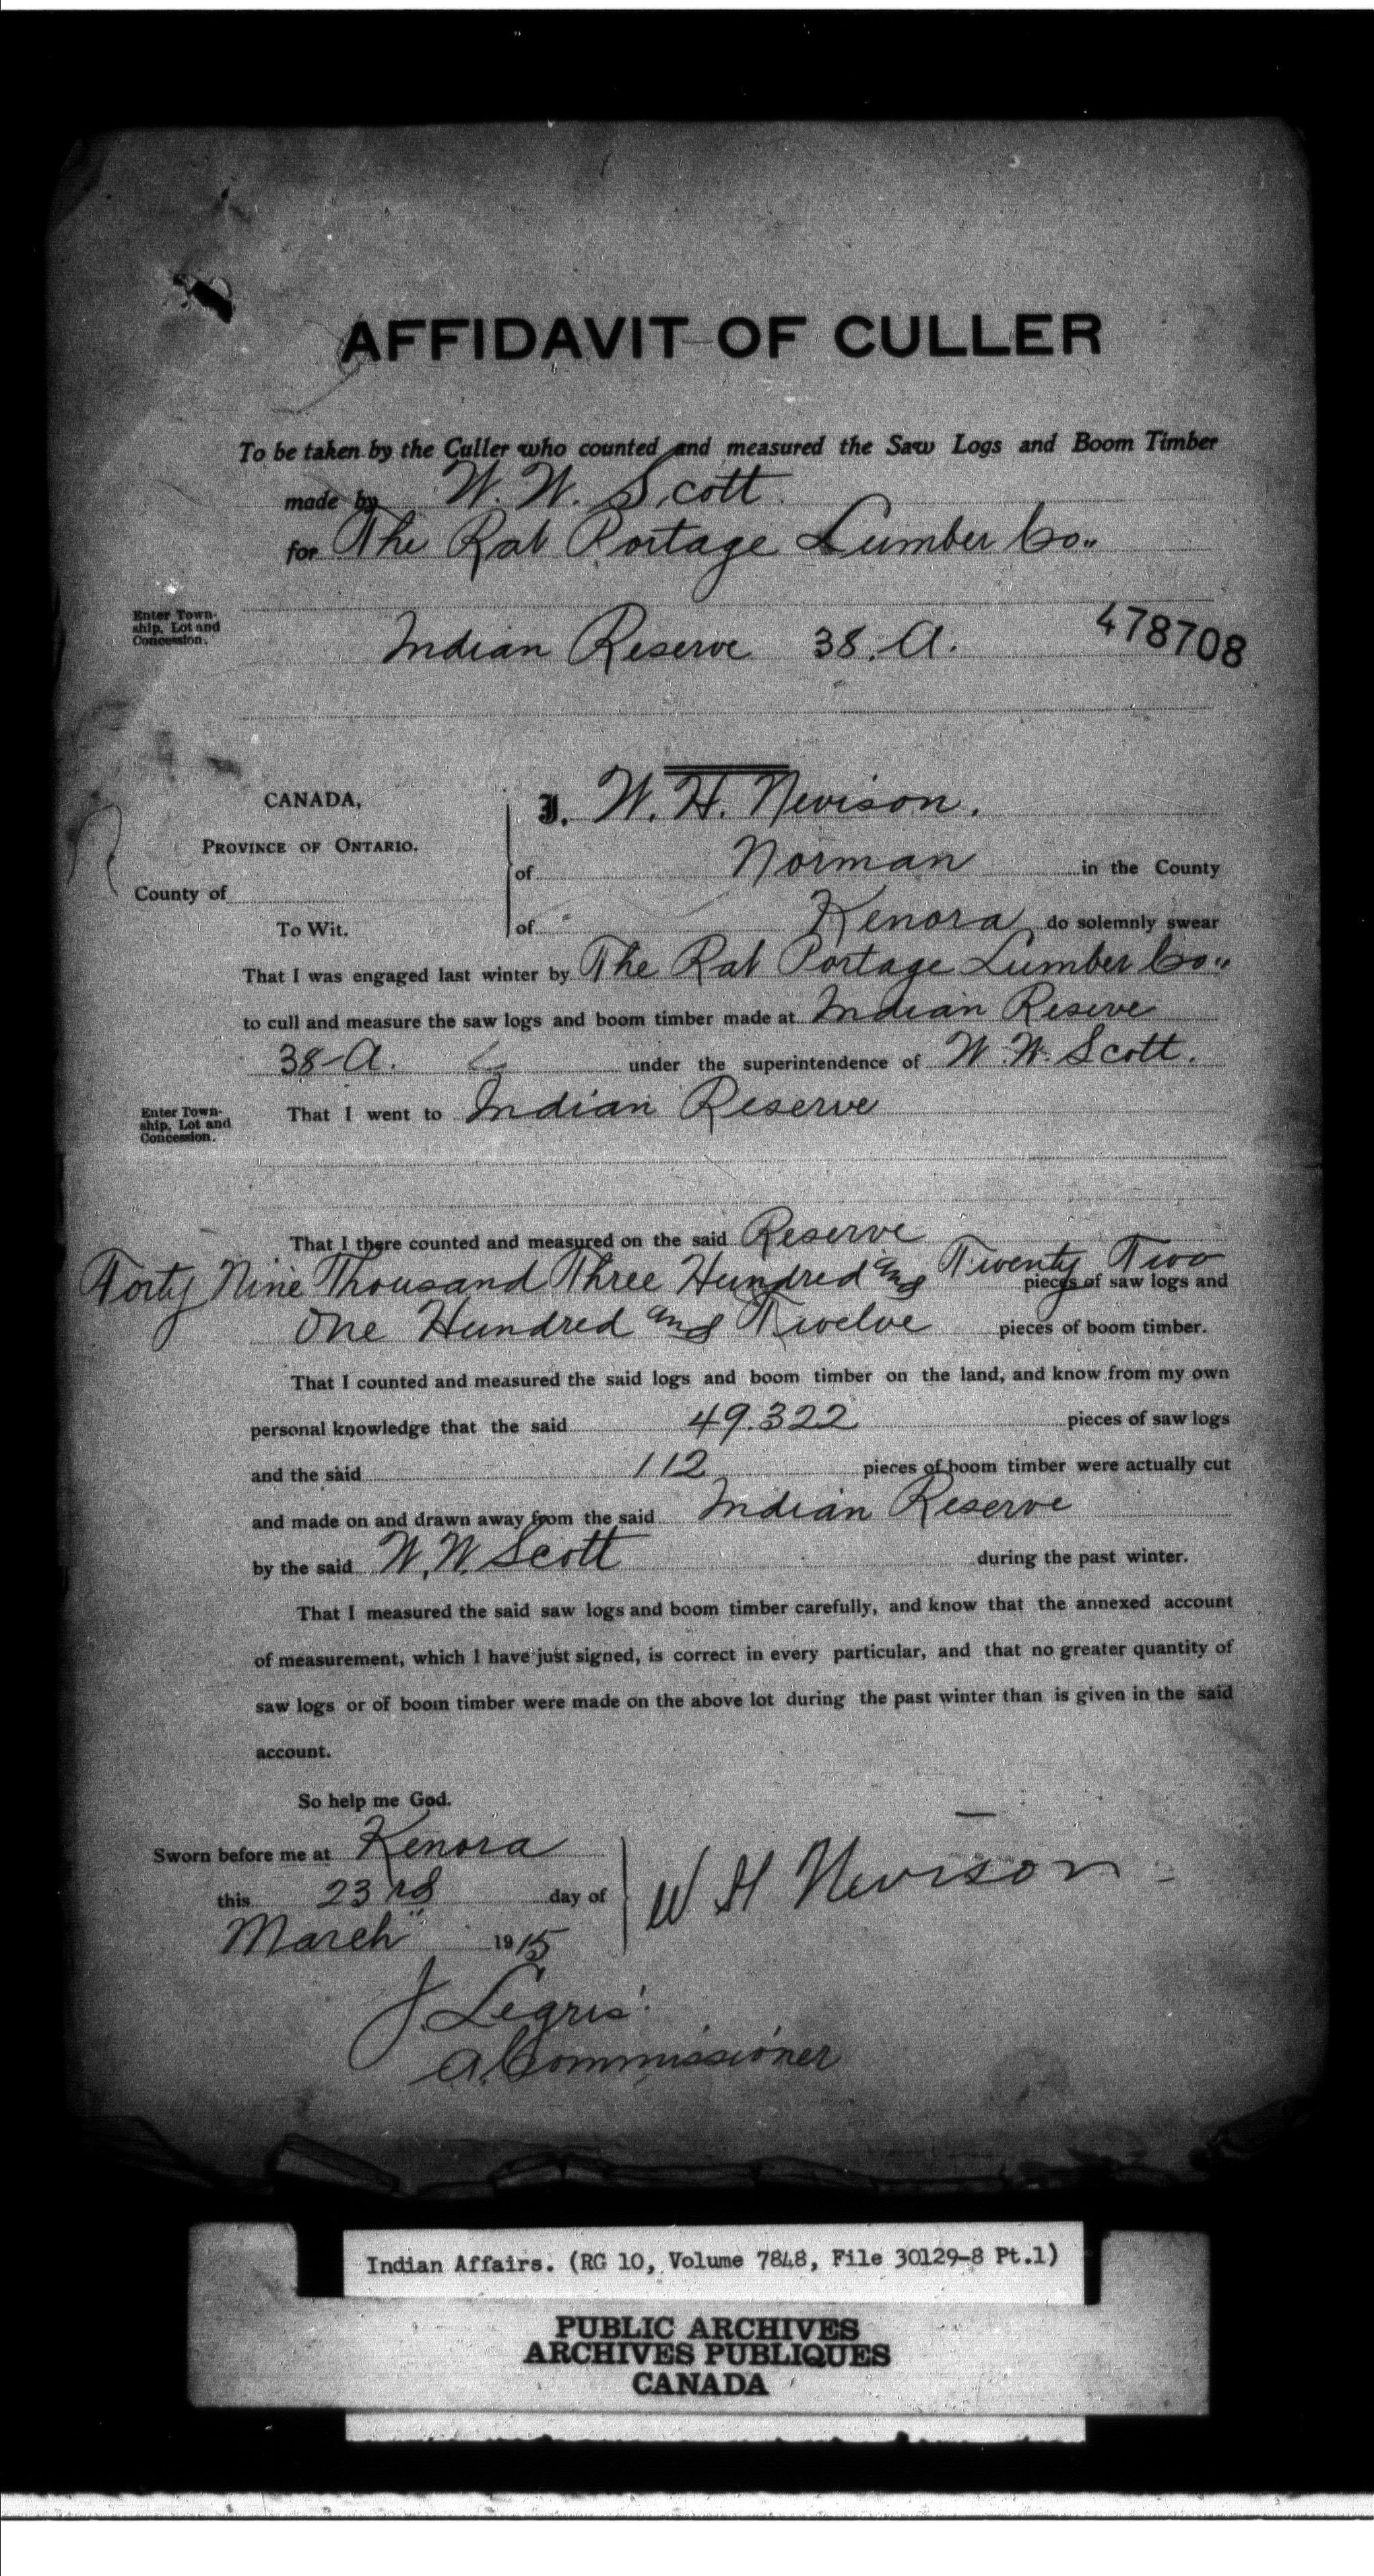 AFFIDAVIT OF CULLER
To be taken by the Culler who counted and measured the Saw Logs and Boom Timber
made by W. W. Scott
for The Rat Portage Lumber Co..
Enter Town-
ship, Lot and
Concession.
Indian Reserve 38. A. 478708
CANADA,
PROVINCE OF ONTARIO.
County of
To Wit.
I. W. H. Nevison.
of Norman in the County
of Kenora do solemnly swear
That I was engaged last winter by The Rat Portage Lumber Co..
to cull and measure the saw logs and boom timber made at Indian Reserve
38-A. under the superintendence of W. W. Scott.
Enter Town-
ship, Lot and
Concession.
That I went to Indian Reserve
That I there counted and measured on the said Reserve
Forty Nine Thousand Three Hundred and Twenty Two pieces of saw logs and
One Hundred and Twelve pieces of boom timber.
That I counted and measured the said logs and boom timber on the land, and know from my own
personal knowledge that the said 49.322 pieces of saw logs
and the said 112 pieces of boom timber were actually cut
and made on and drawn away from the said Indian Reserve
by the said W. W. Scott during the past winter.
That I measured the said saw logs and boom timber carefully, and know that the annexed account
of measurement, which I have just signed, is correct in every particular, and that no greater quantity of
saw logs or of boom timber were made on the above lot during the past winter than is given in the said
account.
So help me God.
Sworn before me at Kenora
this 23rd day of
March 1915
W H Nevison
J. Legris
A. Commissioner
Indian Affairs. (RG 10, Volume 7848, File 30129-8 Pt.1)
PUBLIC ARCHIVES
ARCHIVES PUBLIQUES
CANADA